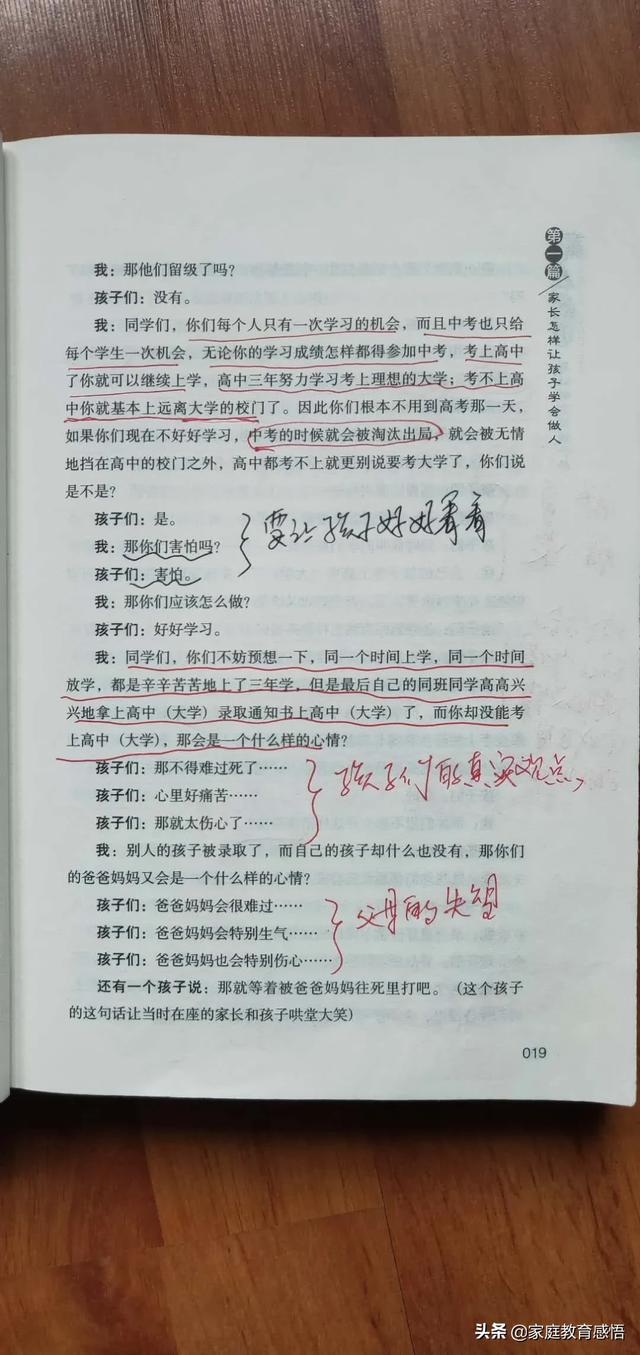 第一篇 家长怎样让孩子学会做人
我：那他们留级了吗？
孩子们：没有。
我：同学们，你们每个人只有一次学习的机会，而且中考也只给
每个学生一次机会，无论你的学习成绩怎样都得参加中考，考上高中
了你就可以继续上学，高中三年努力学习考上理想的大学；考不上高
中你就基本上远离大学的校门了。因此你们根本不用到高考那一天，
如果你们现在不好好学习，中考的时候就会被淘汰出局，就会被无情
地挡在高中的校门之外，高中都考不上就更别说要考大学了，你们说
是不是？
孩子们：是。
我：那你们害怕吗？
孩子们：害怕。
要让孩子好好看看
我：那你们应该怎么做？
孩子们：好好学习。
我：同学们，你们不妨预想一下，同一个时间上学，同一个时间
放学，都是辛辛苦苦地上了三年学，但是最后自己的同班同学高高兴
兴地拿上高中（大学）录取通知书上高中（大学）了，而你却没能考
上高中（大学），那会是一个什么样的心情？
孩子们：那不得难过死了……
孩子们：心里好痛苦……
孩子们：那就太伤心了……
孩子们的真实观点，
我：别人的孩子被录取了，而自己的孩子却什么也没有，那你们
的爸爸妈妈又会是一个什么样的心情？
孩子们：爸爸妈妈会很难过……
孩子们：爸爸妈妈会特别生气……
孩子们：爸爸妈妈也会特别伤心……
父母的失望
还有一个孩子说：那就等着被爸爸妈妈往死里打吧。（这个孩子
的这句话让当时在座的家长和孩子哄堂大笑）
019
头条 @家庭教育感悟